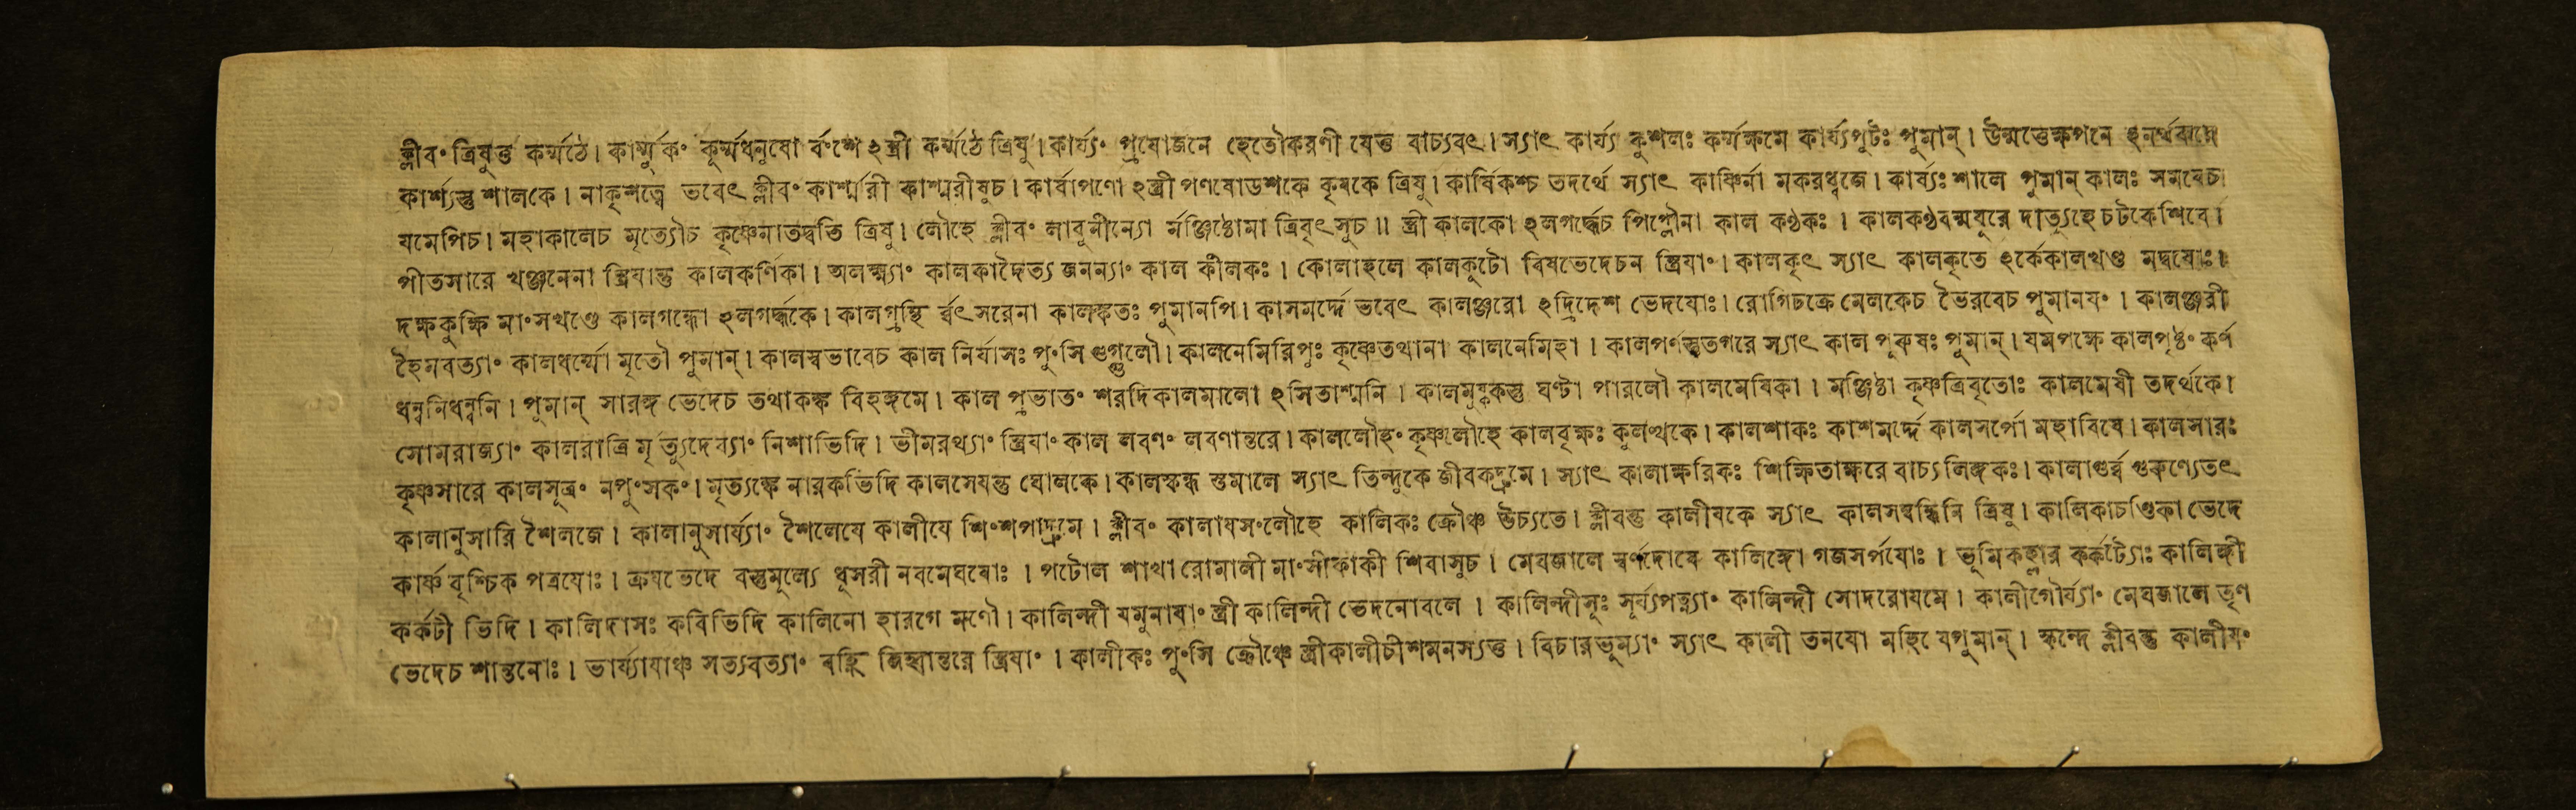 ক্লীব° ত্রিষুত্ত কর্ম্মঠে। কার্ম্মুক° কূর্ম্মধনুষো র্ব°শে ২স্ত্রী কর্ম্মঠে ত্রিষু। কার্য্য° প্রযোজনে হেতৌকরণী যেত্ত বাচ্যবৎ। স্যাৎ কার্য্য কুশলঃ কর্ম্মক্ষমে কার্য্যপুটঃ পুমান্। উন্মত্তেক্ষপনে ২নর্থকামে
কার্শ্যস্তু শালকে। নাকৃশত্বে ভবেৎ ক্লীব° কার্শ্মরী কাশ্মরীষুচ। কার্ষাপণো ২স্ত্রী পণষোডশকে কৃষকে ত্রিষু। কার্ষিকশ্চ তদর্থে স্যাৎ কার্ষ্ণির্না মকরধ্বজে। কার্ষ্যঃ শালে পুমান্ কালঃ সমযেচ।
যমেপিচ। মহাকালেচ মৃত্যৌচ কৃষ্ণেনাতদ্বতি ত্রিষু। লৌহে ক্লীব° লাবুনীন্যো র্মঞ্জিষ্ঠোমা ত্রিবৃৎসুচ॥ স্ত্রী কালকো ২লগর্দ্ধেচ পিপ্লৌনা কাল কণ্ঠকঃ। কালকণ্ঠবন্মযুরে দাত্যুহে চটকেশিবে।
পীতসারে খঞ্জনেনা স্ত্রিযান্তু কালকর্ণিকা। অলক্ষ্ম্যা° কালকাদৈত্য জনন্যা° কাল কীলকঃ। কোলাহলে কালকুটো বিষভেদেচন স্ত্রিযা°। কালকৃৎ স্যাৎ কালকৃতে ২র্কেকালখণ্ড মদ্বযোঃ।
দক্ষকুক্ষি মা°সখণ্ডে কালগন্ধো ২লগর্দ্ধকে। কালগ্রন্থি র্ব্বৎসরেনা কালঙ্কতঃ পুমানপি। কাসমর্দ্দে ভবেৎ কালঞ্জরো ২দ্রিদেশ ভেদযোঃ। রোগিচক্রে মেলকেচ ভৈরবেচ পুমানয°। কালঞ্জরী
হৈমবত্যা° কালধর্ম্মো মৃতৌ পুমান্। কালস্বভাবেচ কাল নির্যাসঃ পু°সি গুগ্গুলৌ। কালনেমিরিপুঃ কৃষ্ণেতথানা কালনেমিহা। কালপর্ণস্তুতগরে স্যাৎ কাল পুরুষঃ পুমান্। যমপক্ষে কালপৃষ্ঠ° কর্ণ
ধন্বনিধন্বনি। পুমান্ সারঙ্গ ভেদেচ তথাকঙ্ক বিহঙ্গমে। কাল প্রভাত° শরদিকালমালো ২সিতাশ্মনি। কালমুষ্ককস্তু ঘণ্টা পারলৌ কালমেষিকা। মঞ্জিষ্ঠা কৃষ্ণত্রিবৃতোঃ কালমেষী তদর্থকে।
সোমরাজ্যা° কালরাত্রি র্মৃত্যুদেব্যা° নিশাভিদি। ভীমরথ্যা° স্ত্রিযা° কাল লবণ° লবণান্তরে। কাললৌহ° কৃষ্ণলৌহে কালবৃক্ষঃ কুলত্থকে। কালশাকঃ কাশমর্দ্দে কালসর্পো মহাবিষে। কালসারঃ
কৃষ্ণসারে কালসূত্র° নপু°সক°। মৃত্যঙ্কে নারকভিদি কালসেযন্তু ঘোলকে। কালস্কন্ধ স্তমালে স্যাৎ তিন্দুকে জীবকদ্রুমে। স্যাৎ কালাক্ষরিকঃ শিক্ষিতাক্ষরে বাচ্যলিঙ্গকঃ। কালাগুর্ব্ব গুরুণ্যেতৎ
কালানুসারি শৈলজে। কালানুসার্য্যা° শৈলেযে কালীযে শি°শপাদ্রুমে। ক্লীব° কালাযস°লৌহে কালিকঃ ক্রৌঞ্চ উচ্যতে। ক্লীবন্তু কালীযকে স্যাৎ কালসম্বন্ধিনি ত্রিষু। কালিকাচণ্ডিকা ভেদে
কার্ষ্ণ বৃশ্চিক পত্রযোঃ। ক্রযভেদে বস্তুমূল্যে ধূসরী নবমেঘযোঃ। পটোল শাখা রোমালী মা°সীকাকী শিবাসুচ। মেঘজালে স্বর্ণদোষে কালিঙ্গো গজসর্পযোঃ। ভূমিকহ্লার কর্কট্যোঃ কালিঙ্গী
কর্কটী ভিদি। কালিদাসঃ কবিভিদি কালিনো হারগে মণৌ। কালিন্দী যমুনাযা° স্ত্রী কালিন্দী ভেদনোবলে। কালিন্দীসূঃ সূর্য্যপত্ন্যা° কালিন্দী সোদরোযমে। কালীগৌর্য্যা° মেঘজালে তৃণ
ভেদেচ শান্তনোঃ। ভার্য্যাযাঞ্চ সত্যবত্যা° বহ্নি জিহ্বান্তরে স্ত্রিযা°। কালীকঃ পু°সি ক্রৌঞ্চে স্ত্রীকালীচীশমনস্যত্ত। বিচারভূম্যা° স্যাৎ কালী তনযো মহিষেপুমান্। স্কন্দে ক্লীবন্তু কালীয°